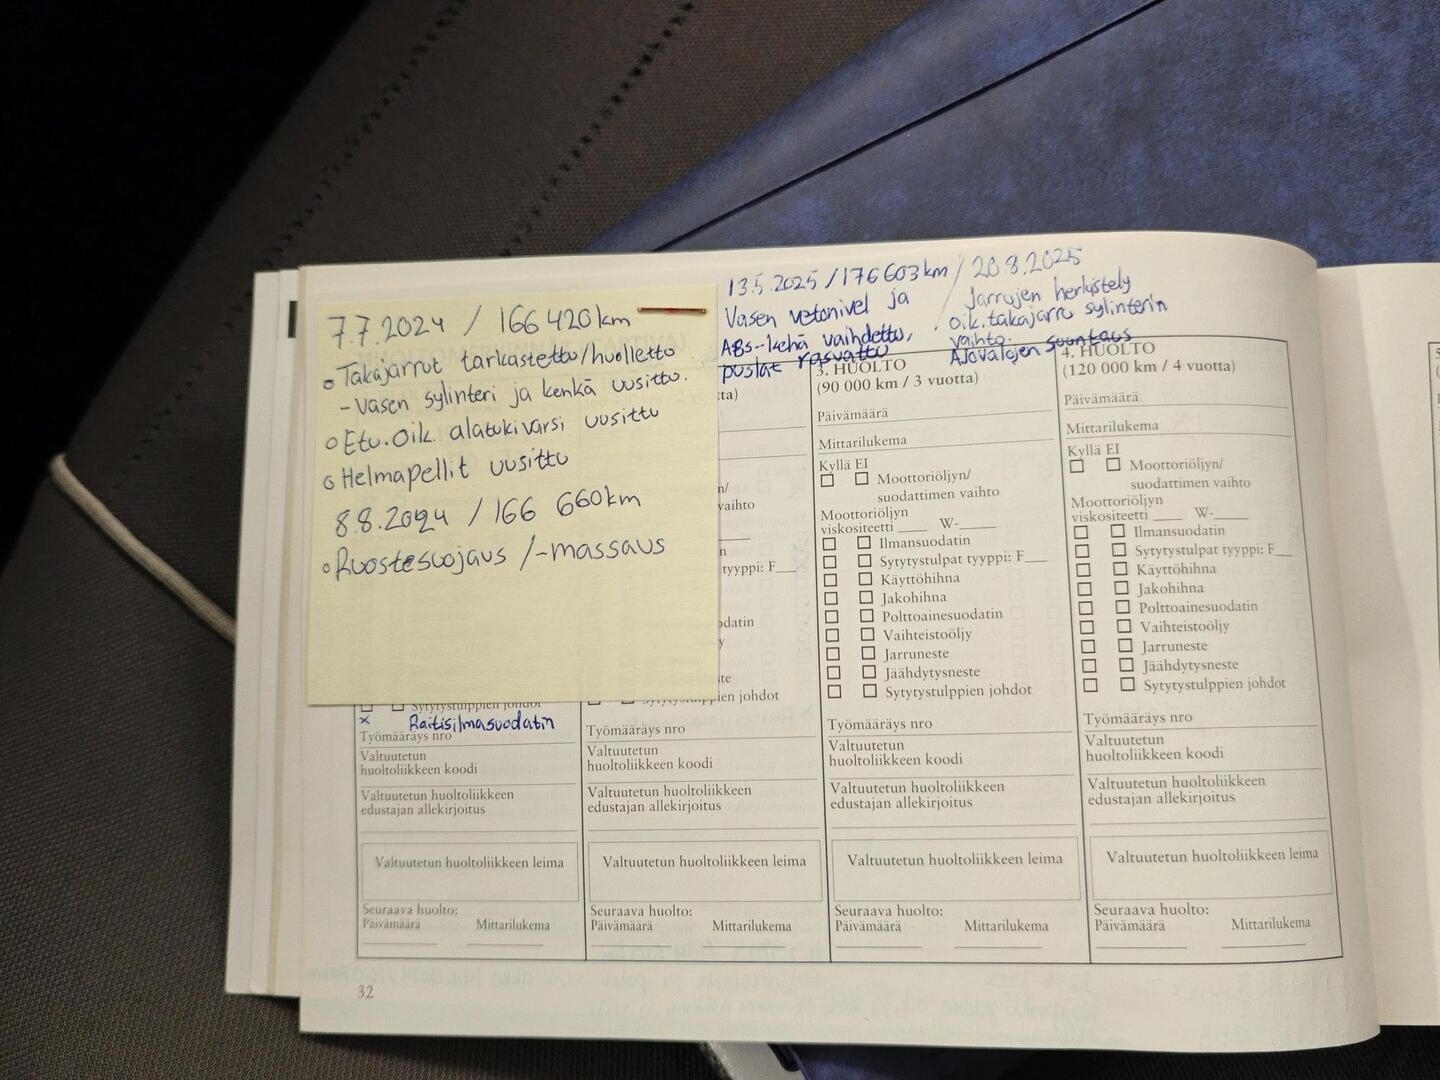 7.7.2024 / 166 420km
Takajarrut tarkastettu/huollettu
-Vasen sylinteri ja kenkä uusittu.
Etu.Oik. alatukivarsi uusittu
Helmapellit uusittu
8.8.2024 / 166 660km
Ruostesuojaus /-massaus
13.5.2025 / 176 603km / 20.8.2025
Vasen vetonivel ja
ABS-kehä vaihdettu,
puslat rasvattu
Jarrujen herkistely
oik.takajarru sylinterin
vaihto.
Ajovalojen suuntaus
Sytytystulppien johdot
x Raitisilmasuodatin
Työmääräys nro
Valtuutetun
huoltoliikkeen koodi
Valtuutetun huoltoliikkeen
edustajan allekirjoitus
Valtuutetun huoltoliikkeen leima
Seuraava huolto:
Päivämäärä Mittarilukema
ta)
n/
vaihto
n
tyyppi: F__
odatin
y
ste
Sytytystulppien johdot
Työmääräys nro
Valtuutetun
huoltoliikkeen koodi
Valtuutetun huoltoliikkeen
edustajan allekirjoitus
Valtuutetun huoltoliikkeen leima
Seuraava huolto:
Päivämäärä Mittarilukema
3. HUOLTO
(90 000 km / 3 vuotta)
Päivämäärä
Mittarilukema
Kyllä EI
Moottoriöljyn/
suodattimen vaihto
Moottoriöljyn
viskositeetti ____ W-____
Ilmansuodatin
Sytytystulpat tyyppi: F__
Käyttöhihna
Jakohihna
Polttoainesuodatin
Vaihteistoöljy
Jarruneste
Jäähdytysneste
Sytytystulppien johdot
Työmääräys nro
Valtuutetun
huoltoliikkeen koodi
Valtuutetun huoltoliikkeen
edustajan allekirjoitus
Valtuutetun huoltoliikkeen leima
Seuraava huolto:
Päivämäärä Mittarilukema
4. HUOLTO
(120 000 km / 4 vuotta)
Päivämäärä
Mittarilukema
Kyllä EI
Moottoriöljyn/
suodattimen vaihto
Moottoriöljyn
viskositeetti ____ W-____
Ilmansuodatin
Sytytystulpat tyyppi: F__
Käyttöhihna
Jakohihna
Polttoainesuodatin
Vaihteistoöljy
Jarruneste
Jäähdytysneste
Sytytystulppien johdot
Työmääräys nro
Valtuutetun
huoltoliikkeen koodi
Valtuutetun huoltoliikkeen
edustajan allekirjoitus
Valtuutetun huoltoliikkeen leima
Seuraava huolto:
Päivämäärä Mittarilukema
32